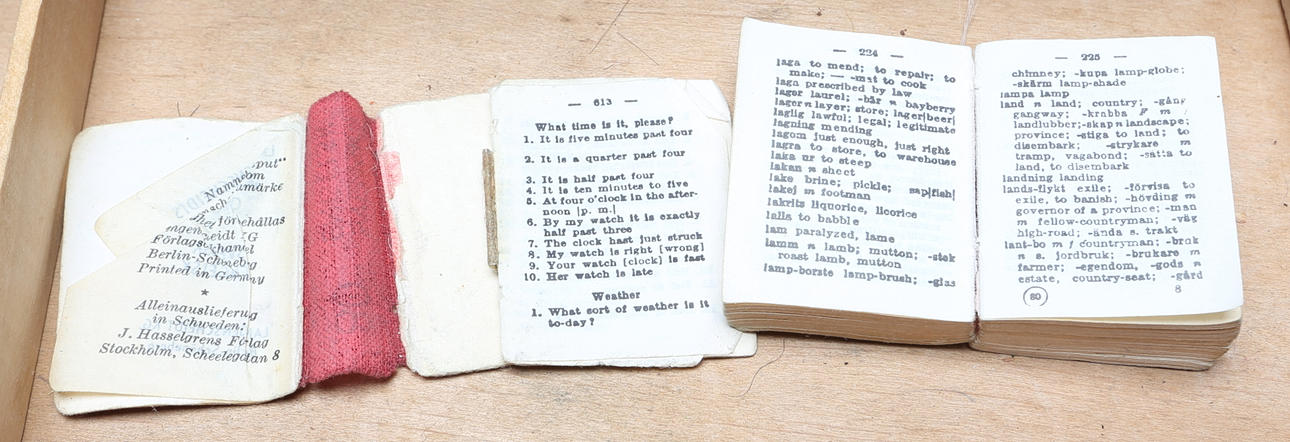 put"
Namnębm
umärke
förbehållas
eidt KG
Förlags
Berlin-Schöneb-g
Printed in Germany
*
Alleinauslieferug
in Schweden:
J. Hasselgrens Förlag
Stockholm, Scheelegatan 8
— 613 —
What time is it, please?
1. It is five minutes past four
2. It is a quarter past four
3. It is half past four
4. It is ten minutes to five
5. At four o'clock in the after-
noon [p. m.]
6. By my watch it is exactly
half past three
7. The clock hast just struck
8. My watch is right [wrong]
9. Your watch [clock] is fast
10. Her watch is late
Weather
1. What sort of weather is it
to-day?
— 224 —
laga to mend; to repair; to
make; — -mat to cook
laga prescribed by law
lager laurel; -bär n bayberry
lager n layer; store; lager|beer|
laglig lawful; legal; legitimate
lagning mending
lagom just enough, just right
lagra to store, to warehouse
laka ur to steep
lakan n sheet
lake brine; pickle; sap|fish|
lakej m footman
lakrits liquorice, licorice
lalla to babble
lam paralyzed, lame
lamm n lamb; mutton; -stek
roast lamb, mutton
lamp-borste lamp-brush; -glas
— 225 —
chimney; -kupa lamp-globe;
-skärm lamp-shade
lampa lamp
land n land; country; -gång
gangway; -krabba F m
landlubber; -skap n landscape;
province; -stiga to land; to
disembark; -strykare m
tramp, vagabond; -sätta to
land, to disembark
landning landing
lands-flykt exile; -förvisa to
exile, to banish; -hövding m
governor of a province; -man
m fellow-countryman; -väg
high-road; -ända s. trakt
lant-bo m f countryman; -bruk
n s. jordbruk; -brukare m
farmer; -egendom, -gods n
estate, country-seat; -gård
80
8